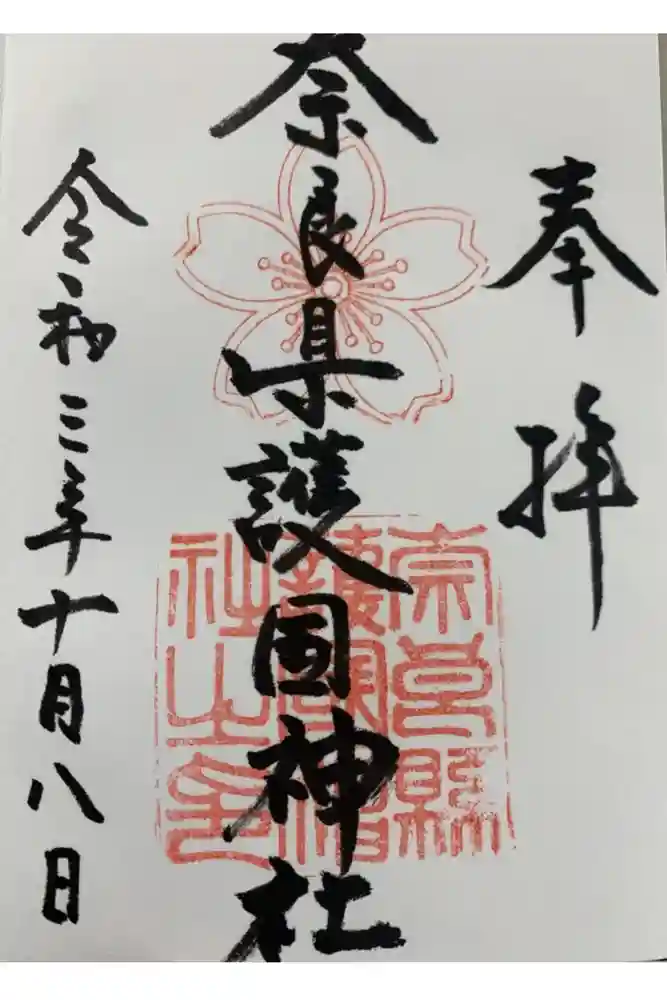 奉拝
奈良県護国神社
令和三年十月八日
奈良縣
護國神
社之印